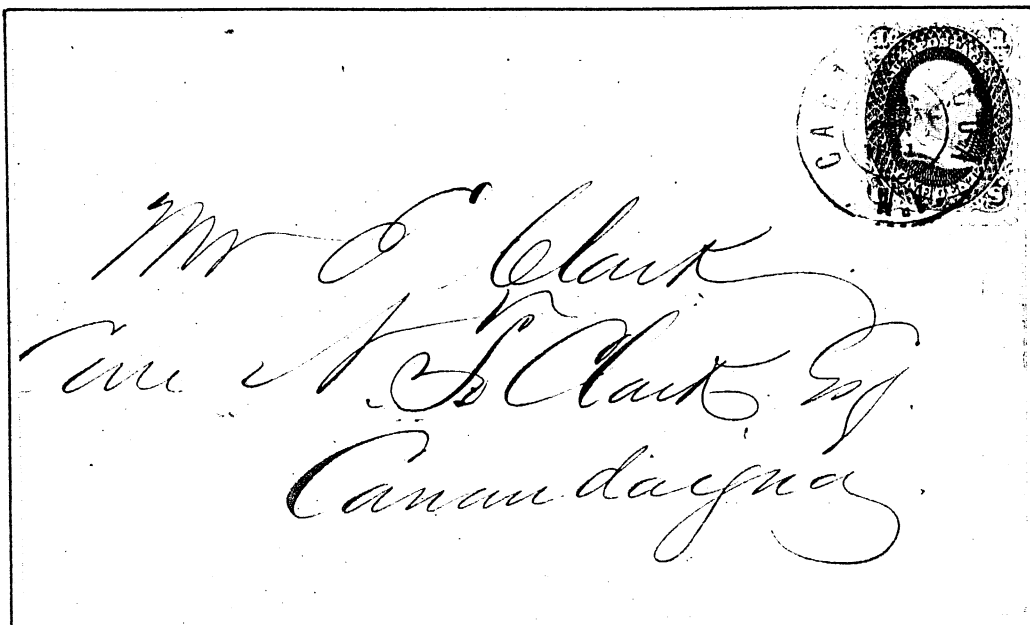 Mr E Clark
Care N. S. Clark Esq.
Canandaigua.